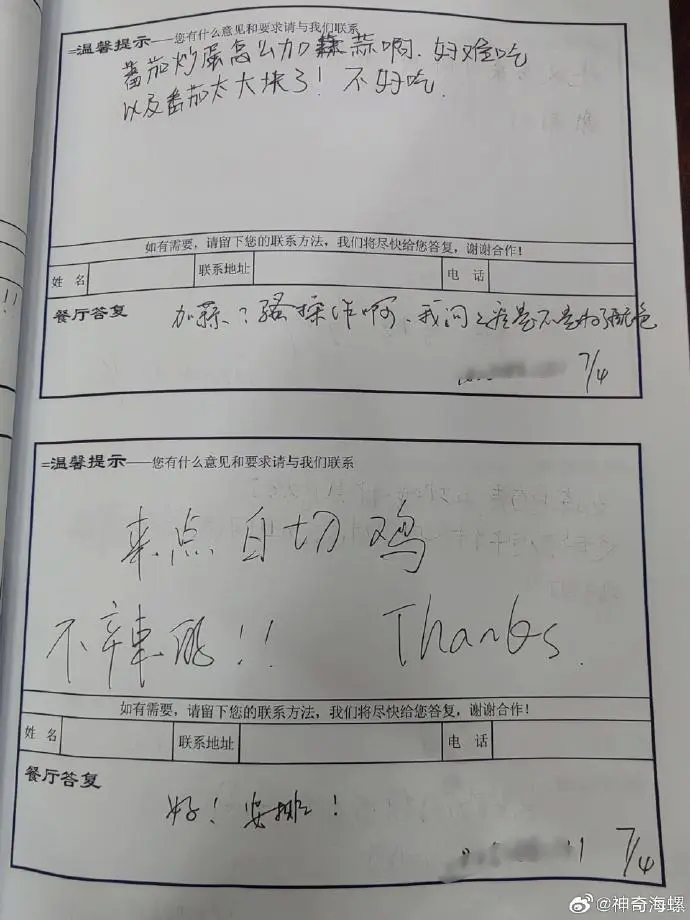 =温馨提示——您有什么意见和要求请与我们联系
蕃茄炒蛋怎么加蒜啊.好难吃
以及番茄太大块了!不好吃.
如有需要，请留下您的联系方法，我们将尽快给您答复，谢谢合作!
姓 名 联系地址 电 话
餐厅答复 加蒜?骚操作啊、我问 是不是为了配色
7/4
=温馨提示——您有什么意见和要求请与我们联系
来点白切鸡
不辣 !! Thanks.
如有需要，请留下您的联系方法，我们将尽快给您答复，谢谢合作!
姓 名 联系地址 电 话
餐厅答复 好!安排!
7/4
@神奇海螺